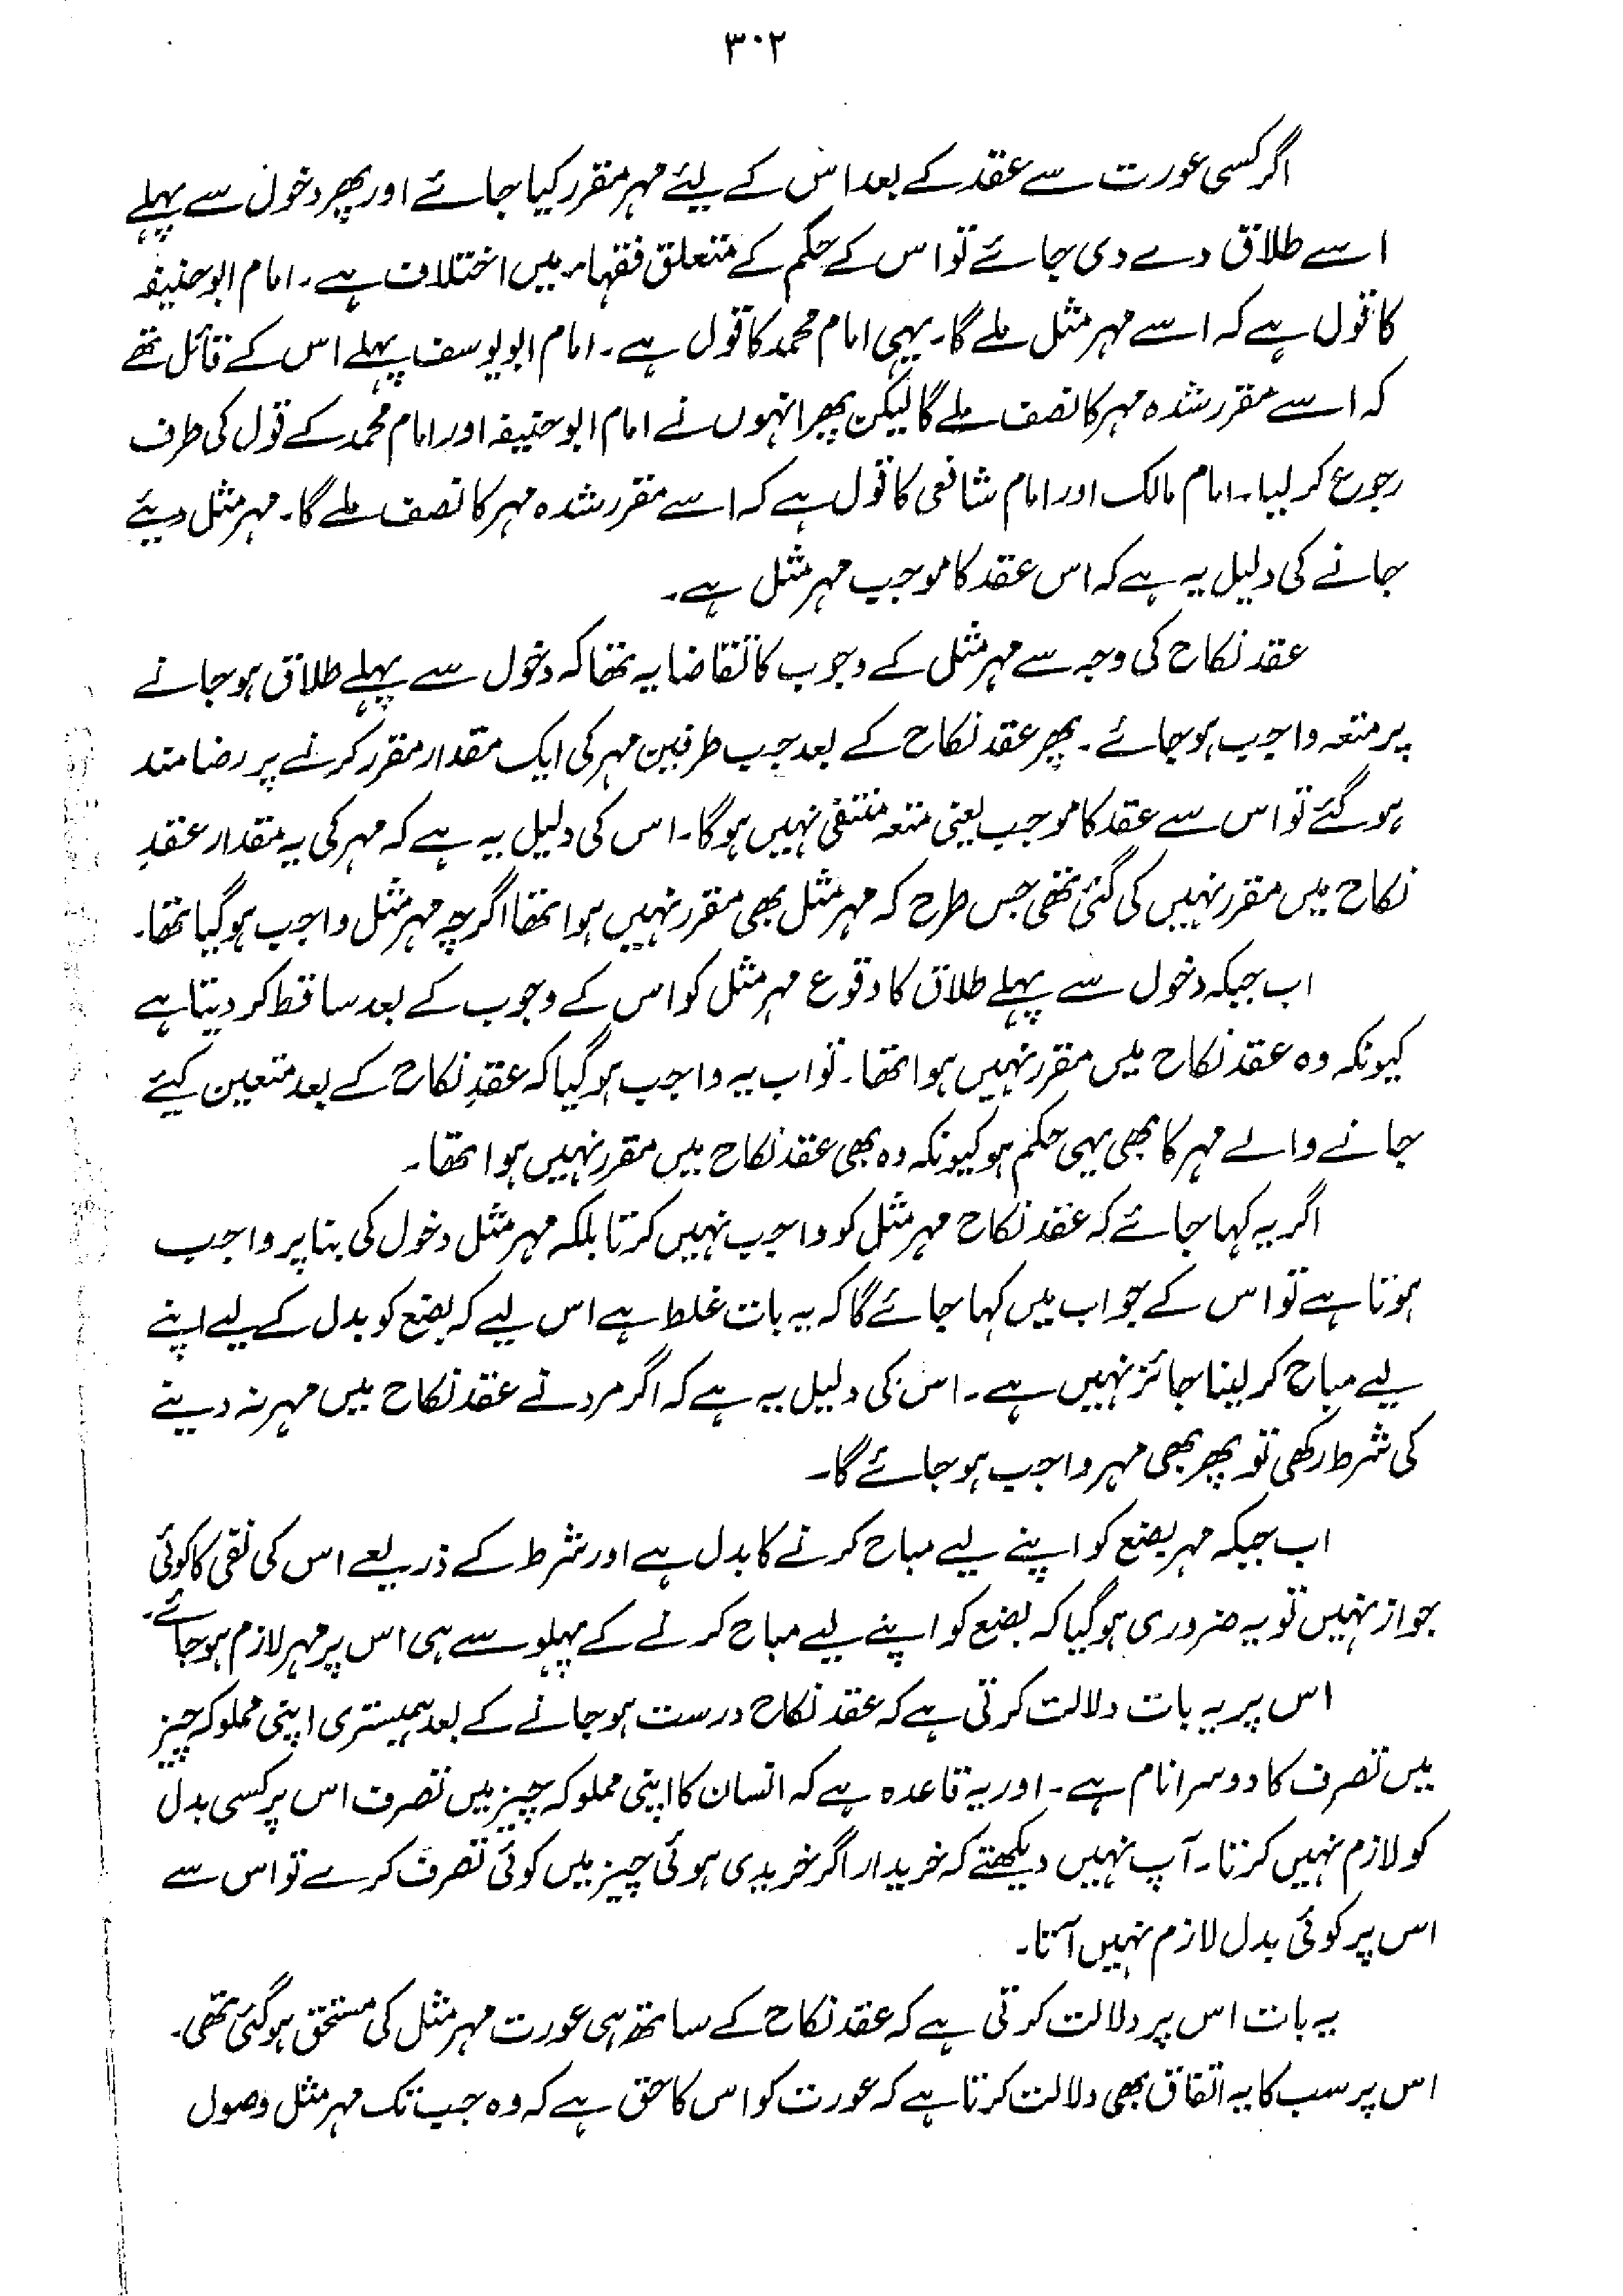 ۳۰۲
اگر کسی عورت سے عقد کے بعد اس کے لیئے مہر مقرر کیا جائے اور پھر دخول سے پہلے
اسے طلاق دے دی جائے تو اس کے حکم کے متعلق فقہاء میں اختلاف ہے۔ امام ابو حنیفہ
کا قول ہے کہ اسے مہر مثل ملے گا۔ یہی امام محمد کا قول ہے۔ امام ابو یوسف پہلے اس کے قائل تھے
کہ اسے مقرر شدہ مہر کا نصف ملے گا لیکن پھر انہوں نے امام ابو حنیفہ اور امام محمد کے قول کی طرف
رجوع کر لیا۔ امام مالک اور امام شافعی کا قول ہے کہ اسے مقرر شدہ مہر کا نصف ملے گا۔ مہر مثل دیئے
جانے کی دلیل یہ ہے کہ اس عقد کا موجب مہر مثل ہے۔
عقد نکاح کی وجہ سے مہر مثل کے وجوب کا تقاضا یہ تھا کہ دخول سے پہلے طلاق ہو جانے
پر متعہ واجب ہو جائے۔ پھر عقد نکاح کے بعد جب طرفین مہر کی ایک مقدار مقرر کرنے پر رضامند
ہو گئے تو اس سے عقد کا موجب یعنی متعہ منتفی نہیں ہو گا۔ اس کی دلیل یہ ہے کہ مہر کی یہ مقدار عقدِ
نکاح میں مقرر نہیں کی گئی تھی جس طرح کہ مہر مثل بھی مقرر نہیں ہوا تھا اگرچہ مہر مثل واجب ہو گیا تھا۔
اب جبکہ دخول سے پہلے طلاق کا وقوع مہر مثل کو اس کے وجوب کے بعد ساقط کر دیتا ہے
کیونکہ وہ عقد نکاح میں مقرر نہیں ہوا تھا۔ تو اب یہ واجب ہو گیا کہ عقدِ نکاح کے بعد متعین کیئے
جانے والے مہر کا بھی یہی حکم ہو کیونکہ وہ بھی عقد نکاح میں مقرر نہیں ہوا تھا۔
اگر یہ کہا جائے کہ عقد نکاح مہر مثل کو واجب نہیں کرتا بلکہ مہر مثل دخول کی بنا پر واجب
ہوتا ہے تو اس کے جواب میں کہا جائے گا کہ یہ بات غلط ہے اس لیے کہ بضع کو بدل کے لیے اپنے
لیے مباح کر لینا جائز نہیں ہے۔ اس کی دلیل یہ ہے کہ اگر مرد نے عقد نکاح میں مہر نہ دینے
کی شرط رکھی تو پھر بھی مہر واجب ہو جائے گا۔
اب جبکہ مہر بضع کو اپنے لیے مباح کرنے کا بدل ہے اور شرط کے ذریعے اس کی نفی کا کوئی
جواز نہیں تو یہ ضروری ہو گیا کہ بضع کو اپنے لیے مباح کرنے کے پہلو سے ہی اس پر مہر لازم ہو جائے۔
اس پر یہ بات دلالت کرتی ہے کہ عقد نکاح درست ہو جانے کے بعد ہمبستری اپنی مملوکہ چیز
میں تصرف کا دوسرا نام ہے۔ اور یہ قاعدہ ہے کہ انسان کا اپنی مملوکہ چیز میں تصرف اس پر کسی بدل
کو لازم نہیں کرتا۔ آپ نہیں دیکھتے کہ خریدار اگر خریدی ہوئی چیز میں کوئی تصرف کرے تو اس سے
اس پر کوئی بدل لازم نہیں آتا۔
یہ بات اس پر دلالت کرتی ہے کہ عقد نکاح کے ساتھ ہی عورت مہر مثل کی مستحق ہو گئی تھی۔
اس پر سب کا یہ اتفاق بھی دلالت کرتا ہے کہ عورت کو اس کا حق ہے کہ وہ جب تک مہر مثل وصول